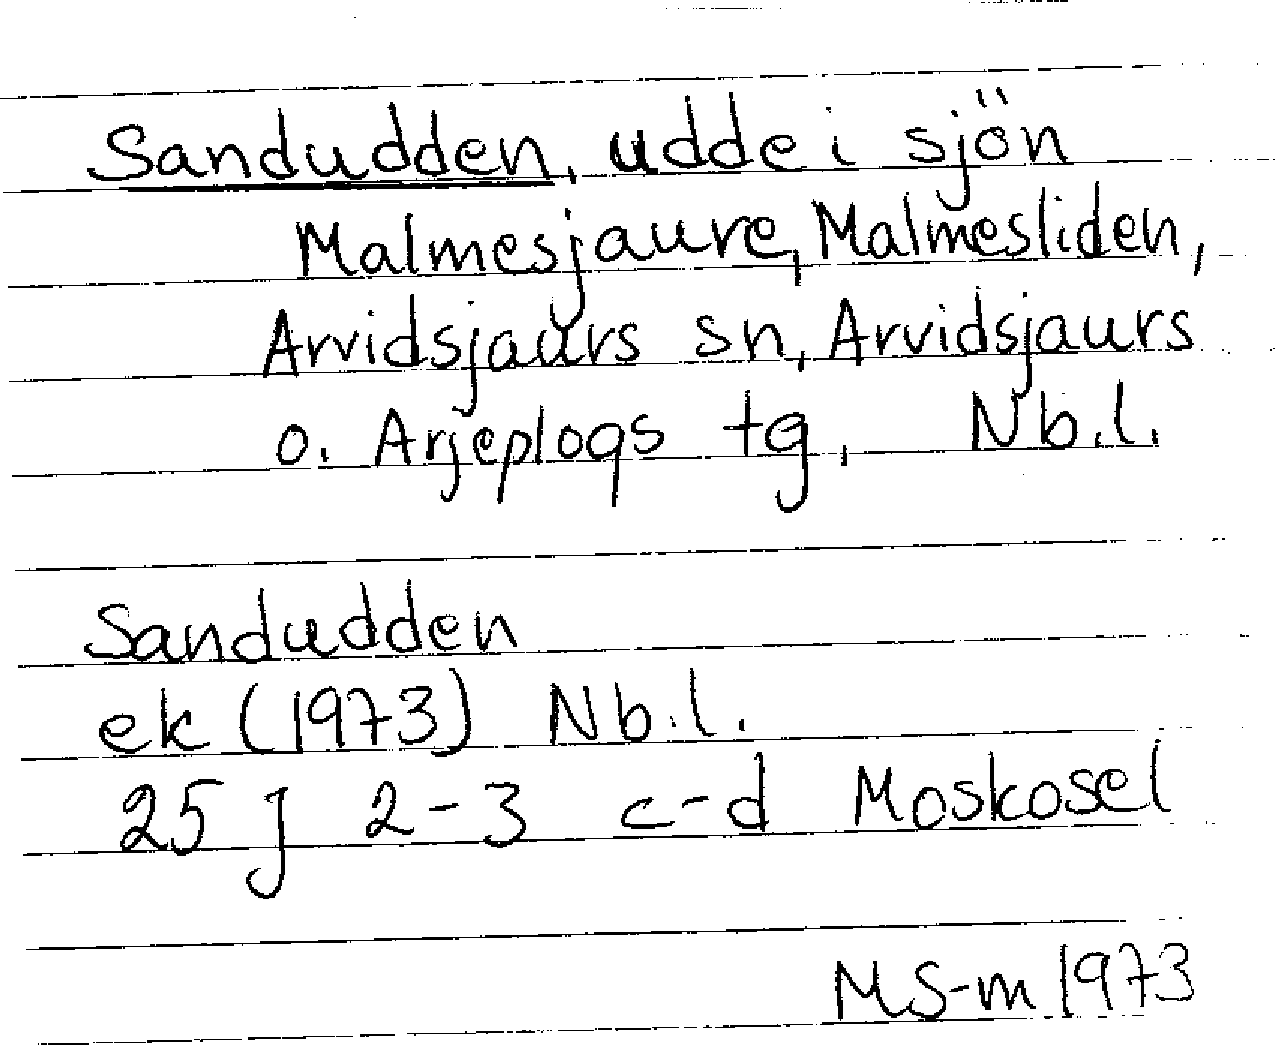 Sandudden, udde i sjön
Malmesjaure, Malmesliden,
Arvidsjaurs sn, Arvidsjaurs
o. Arjeplogs tg, Nb.l.
Sandudden
ek (1973) Nb.l.
25 J 2-3 c-d Moskosel
MS-m 1973